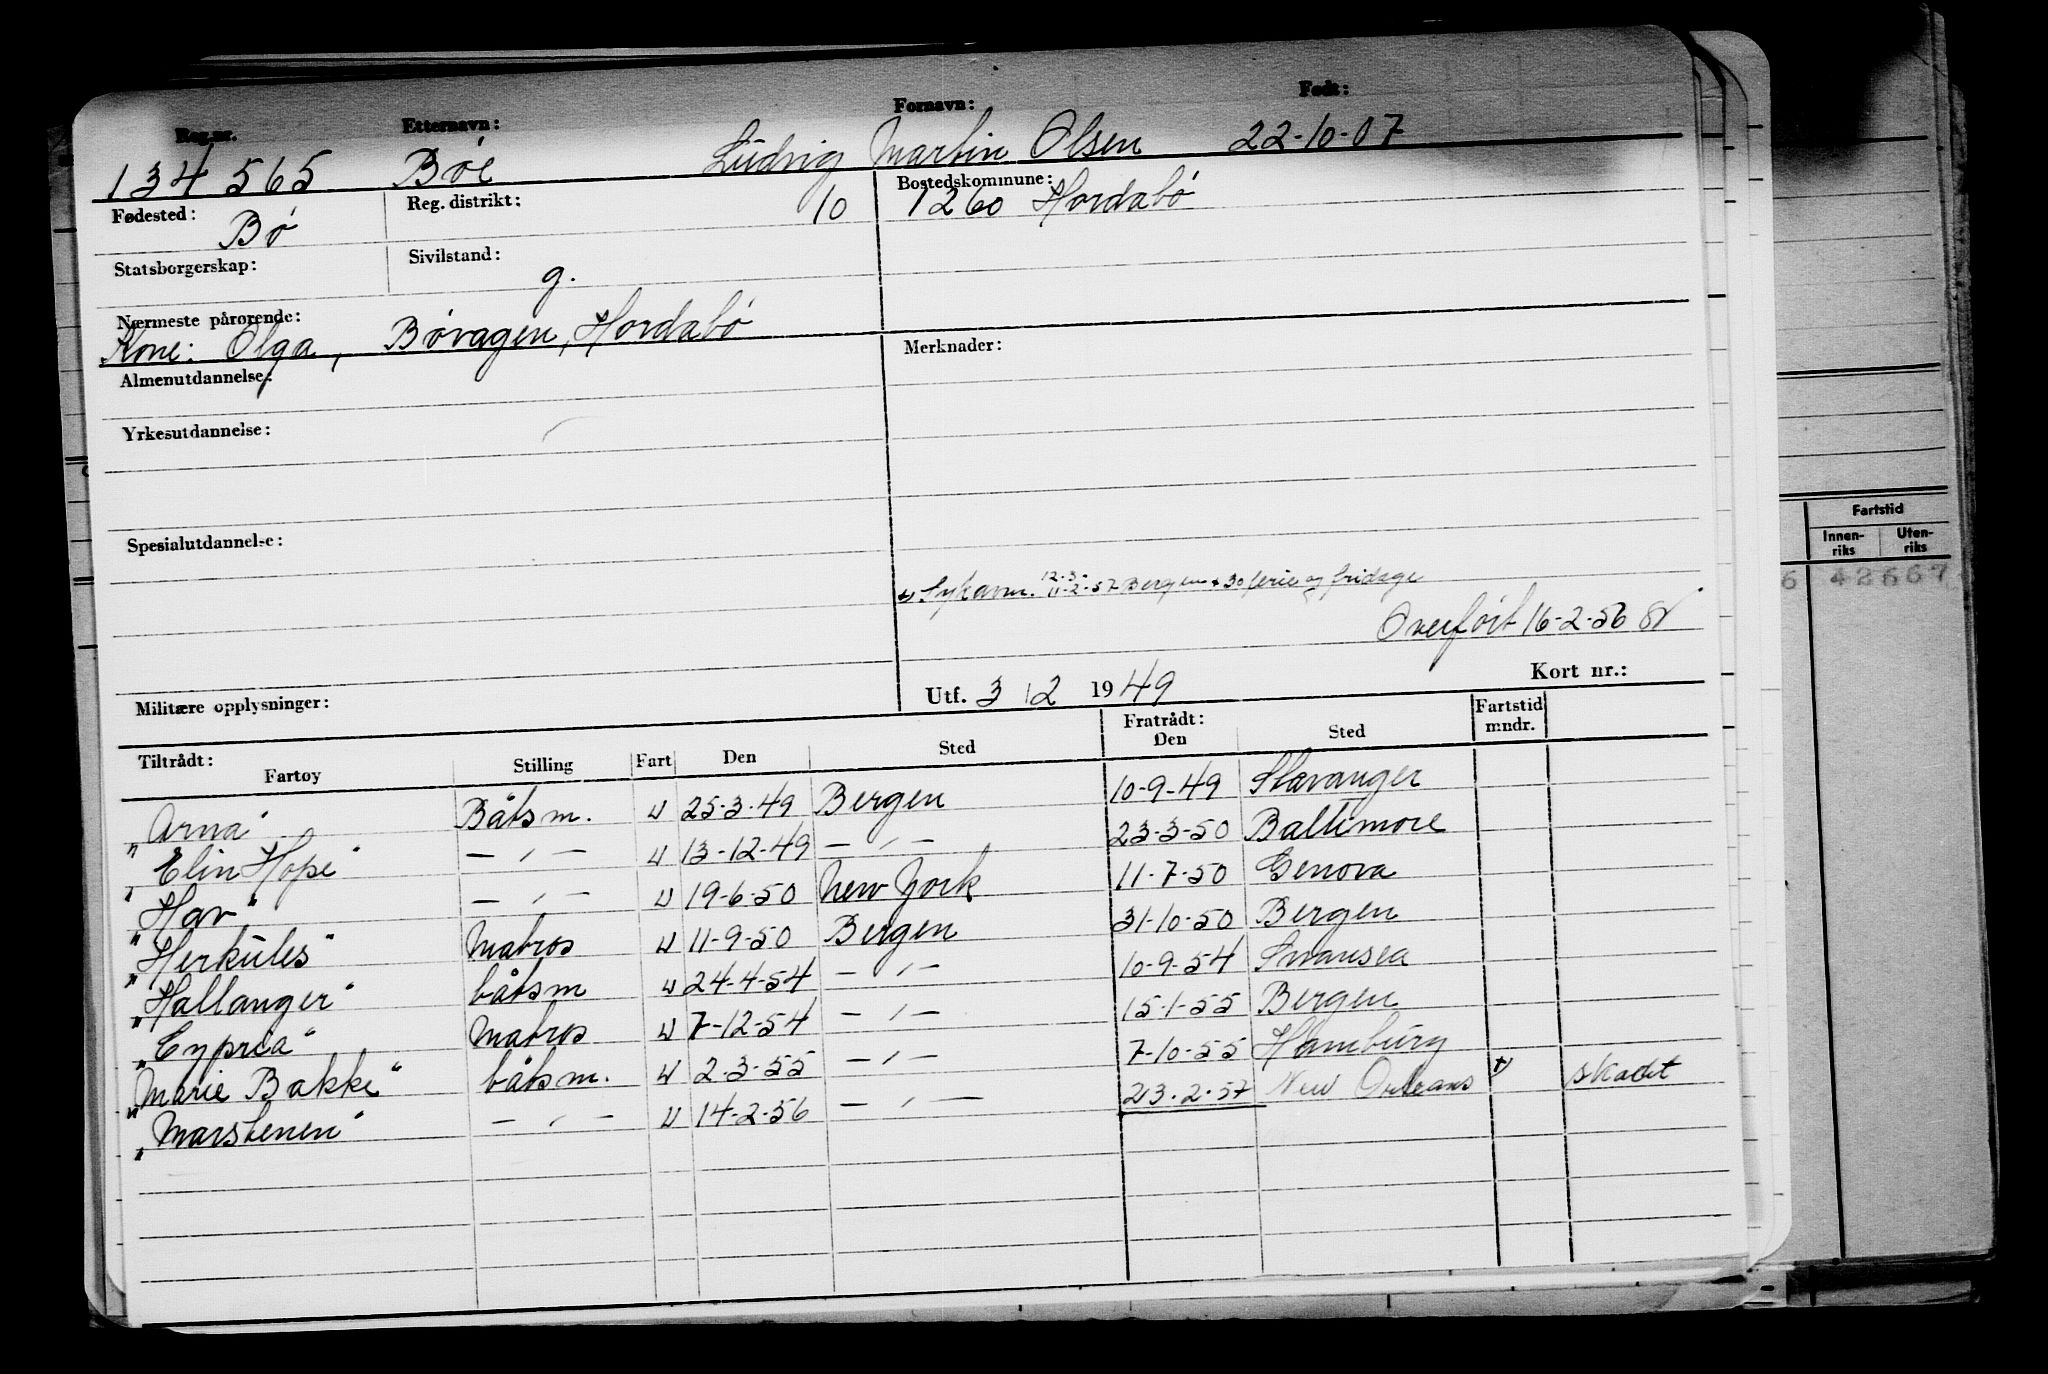 Reg.nr. Etternavn: Fornavn: Født:
134 565 Bøe Ludvig Martin Olsen 22-10-07
Fødested: Bø Reg. distrikt: 10 Bostedskommune: 1260 Hordabø
Statsborgerskap: Sivilstand: g.
Nærmeste pårørende:
Kone: Olga, Bøvagen, Hordabø
Almenutdannelse: Merknader:
Yrkesutdannelse:
Spesialutdannelse:
12-3-
Sykavm. 11-2-57 Bergen + 30 ferie og fridage
Overført 16-2-56
Militære opplysninger: Utf. 3 12 1949 Kort nr.:
Tiltrådt: Fartøy Stilling Fart Den Sted Fratrådt: Den Sted Fartstid mndr.
"Arna" Båtsm. U 25-3-49 Bergen 10-9-49 Stavanger
"Elin Hope" — " — U 13-12-49 — " — 23-3-50 Baltimore
"Hav" — " — U 19-6-50 New York 11-7-50 Genova
"Herkules" Matros U 11-9-50 Bergen 31-10-50 Bergen
"Hallanger" båtsm U 24-4-54 — " — 10-9-54 Swansea
"Cypria" Matros U 7-12-54 — " — 15-1-55 Bergen
"Marie Bakke" båtsm. U 2-3-55 — " — 7-10-55 Hamburg
"Marstenen" — " — U 14-2-56 — " — 23.2.57 New Orleans skadet
Fartstid
Innen-riks Uten-riks
6 42667